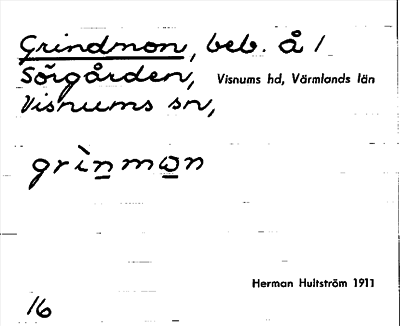 Grindmon, beb. å /
Sörgården, Visnums hd, Värmlands län
Visnums sn,
grìn̲mo̲n
Herman Hultström 1911
16